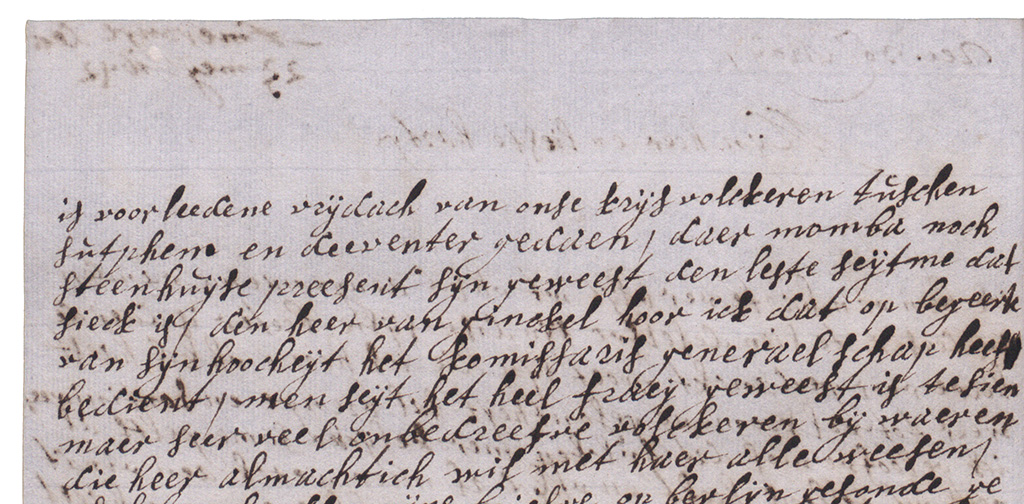 is voorleedene vrijdach van onse krijs volckeren tuschen
sutphem en deeventer gedaen / daer momba noch
steenhuijse preesent sijn geweest den leste seijt me dat
sieck is / den heer van ginckel hoor ick dat op begeerte
van sijn hoocheijt het komissaris generael schap heeft
bedient / men seijt het heel fraeij geweest is te sien
maer seer veel onbedreefve volckeren bij waeren
die heer almachtich wil met haer alle weesen /
op berlijn gesonde ge